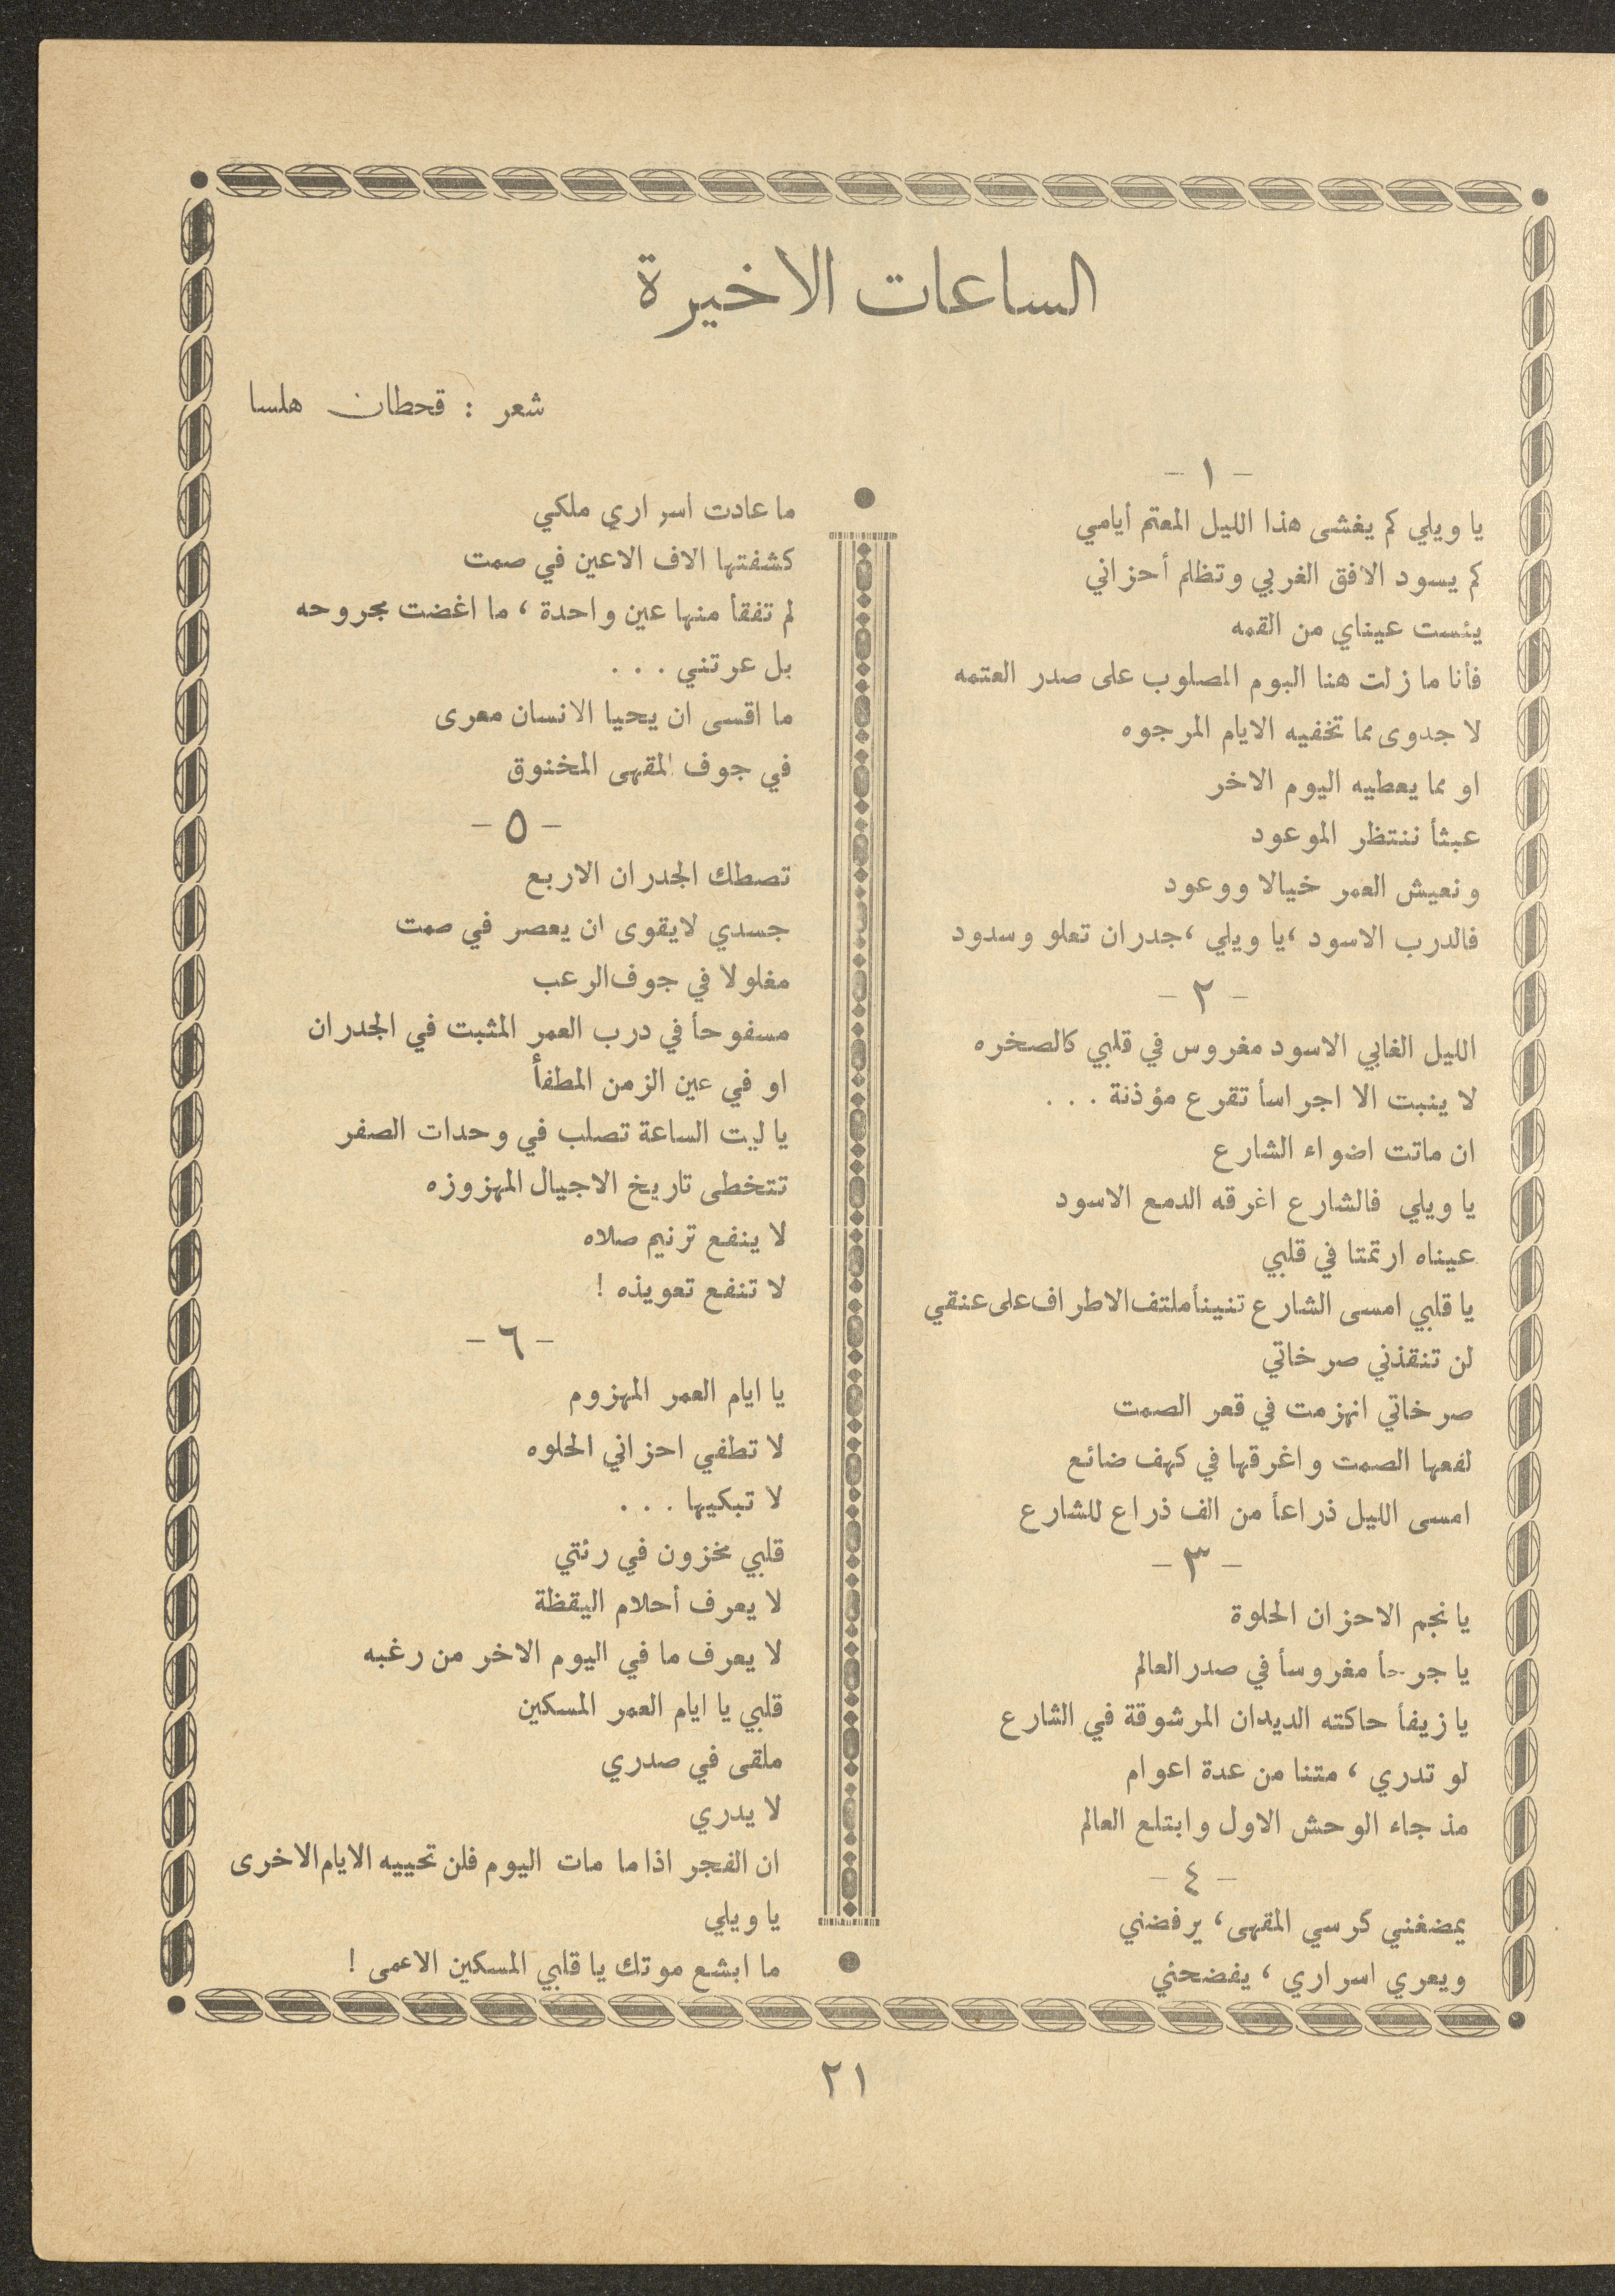 الساعات الاخيرة
شعر : قحطان هلسا
- ١ -
يا ويلي كم يغشى هذا الليل المعتم أيامي
كم يسود الافق الغربي وتظلم أحزاني
يئست عيناي من القمه
فأنا ما زلت هنا البوم المصلوب على صدر العتمه
لا جدوى مما تخفيه الايام المرجوه
او مما يعطيه اليوم الاخر
عبثاً ننتظر الموعود
ونعيش العمر خيالا ووعود
فالدرب الاسود ،يا ويلي ،جدران تعلو وسدود
- ٢ -
الليل الغابي الاسود مغروس في قلبي كالصخره
لا ينبت الا اجراساً تقرع مؤذنة . . .
ان ماتت اضواء الشارع
يا ويلي فالشارع اغرقه الدمع الاسود
عيناه ارتمتا في قلبي
يا قلبي امسى الشارع تنيناً ملتف الاطراف على عنقي
لن تنقذني صرخاتي
صرخاتي انهزمت في قعر الصمت
لفعها الصمت واغرقها في كهف ضائع
امسى الليل ذراعاً من الف ذراع للشارع
- ٣ -
يا نجم الاحزان الحلوة
يا جرحاً مغروساً في صدر العالم
يا زيفاً حاكته الديدان المرشوقة في الشارع
لو تدري ، متنا من عدة اعوام
مذ جاء الوحش الاول وابتلع العالم
- ٤ -
يمضغني كرسي المقهى، يرفضني
ويعري اسراري ، يفضحني
ما عادت اسراري ملكي
كشفتها الاف الاعين في صمت
لم تفقأ منها عين واحدة ، ما اغضت مجروحه
بل عرتني . . .
ما اقسى ان يحيا الانسان معرى
في جوف المقهى المخنوق
- ٥ -
تصطك الجدران الاربع
جسدي لايقوى ان يعصر في صمت
مغلولا في جوف الرعب
مسفوحاً في درب العمر المثبت في الجدران
او في عين الزمن المطفأ
يا ليت الساعة تصلب في وحدات الصفر
تتخطى تاريخ الاجيال المهزوزه
لا ينفع ترنيم صلاه
لا تنفع تعويذه !
- ٦ -
يا ايام العمر المهزوم
لا تطفي احزاني الحلوه
لا تبكيها . . .
قلبي مخزون في رئتي
لا يعرف أحلام اليقظة
لا يعرف ما في اليوم الاخر من رغبه
قلبي يا ايام العمر المسكين
ملقى في صدري
لا يدري
ان الفجر اذا ما مات اليوم فلن تحييه الايام الاخرى
يا ويلي
ما ابشع موتك يا قلبي المسكين الاعمى !
٢١